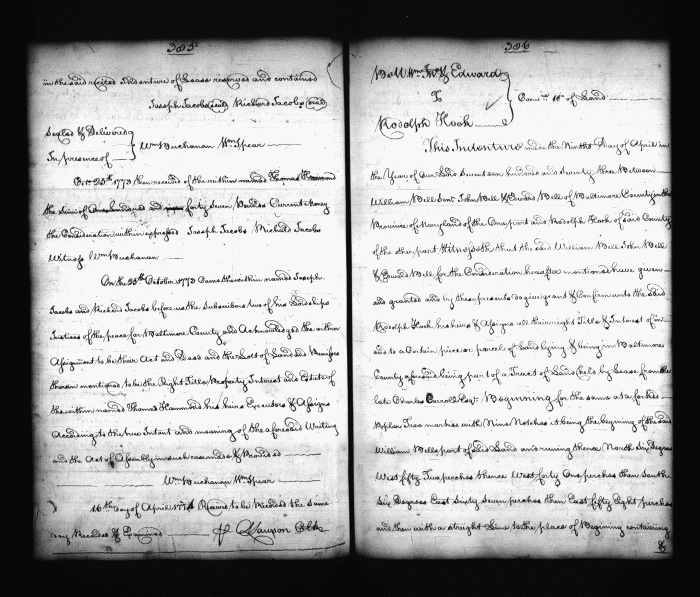 385
in the said recited Indenture of Lease reserved and contained
Joseph Jacobs seal Richard Jacobs seal
Sealed & Delivered
In presence of
Wm Buchanan Wm Spear
Octr 25th 1773 then received of the within named Thomas Hammond
the Sum of One hundred and forty Seven Pounds Current money
the Consideration within expressed Joseph Jacobs Richard Jacobs
Witness Wm Buchanan
On the 25th October 1773 Came the within named Joseph
Jacobs and Richard Jacobs before us the Subscribers two of his Lordships
Justices of the peace for Baltimore County and Acknowledged the within
Assignment to be their Act and Deed and the Lott of Land and Premises
therein mentioned to be the Right Title Property Interest and Estate of
the within named Thomas Hammond his heirs Executors & Assigns
According to the true Intent and meaning of the aforesaid Writing
and the Act of Assembly in such case made & Provided
Wm Buchanan Wm Spear
16th day of April 1774 Received to be Recorded the same
day Recorded & Examined A Lawson Clk
386
Bell Wm Jno & Edward
To
Rodolph Hook
Conv of Land
This Indenture made this Ninth Day of April in
the Year of Our Lord Seventeen hundred and Seventy three Between
William Bell Senr John Bell & Edward Bell of Baltimore County in the
Province of Maryland of the One part and Rodolph Hook of said County
of the other part Witnesseth that the said William Bell John Bell
& Edward Bell for the Consideration hereafter mentioned have given
and granted and by these presents do give grant & Confirm unto the said
Rodolph Hook his heirs & Assigns all their right Title & Interest of in
and to a Certain piece or parcel of Land lying & being in Baltimore
County aforesaid being part of a Tract of Land held by Lease from the
late Charles Carroll Esqr Beginning for the same at a forked
Poplar Tree marked with Nine Notches it being the begining of the said
William Bells part of said Land and runing thence North Six Degrees
West fifty Two perches thence West forty One perches then South
Six Degrees East Sixty Seven perches then East fifty Eight perches
and then with a streight Line to the place of Begining containing
&